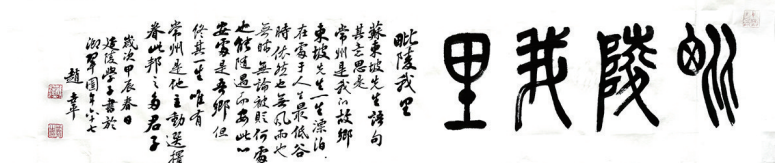 毗陵我里
毗陵我里
蘇東坡先生語句
其意思是
常州是我的故鄉
東坡先生一生漂泊
在處于人生最低谷
時依然也無風雨也
無晴無論被貶何處
也能隨遇而安此心
安處是吾鄉但
終其一生唯有
常州是他主動選擇
眷此邦之多君子
歲次甲辰春日
延陵學子書於
湖翠園年六十七
趙韋